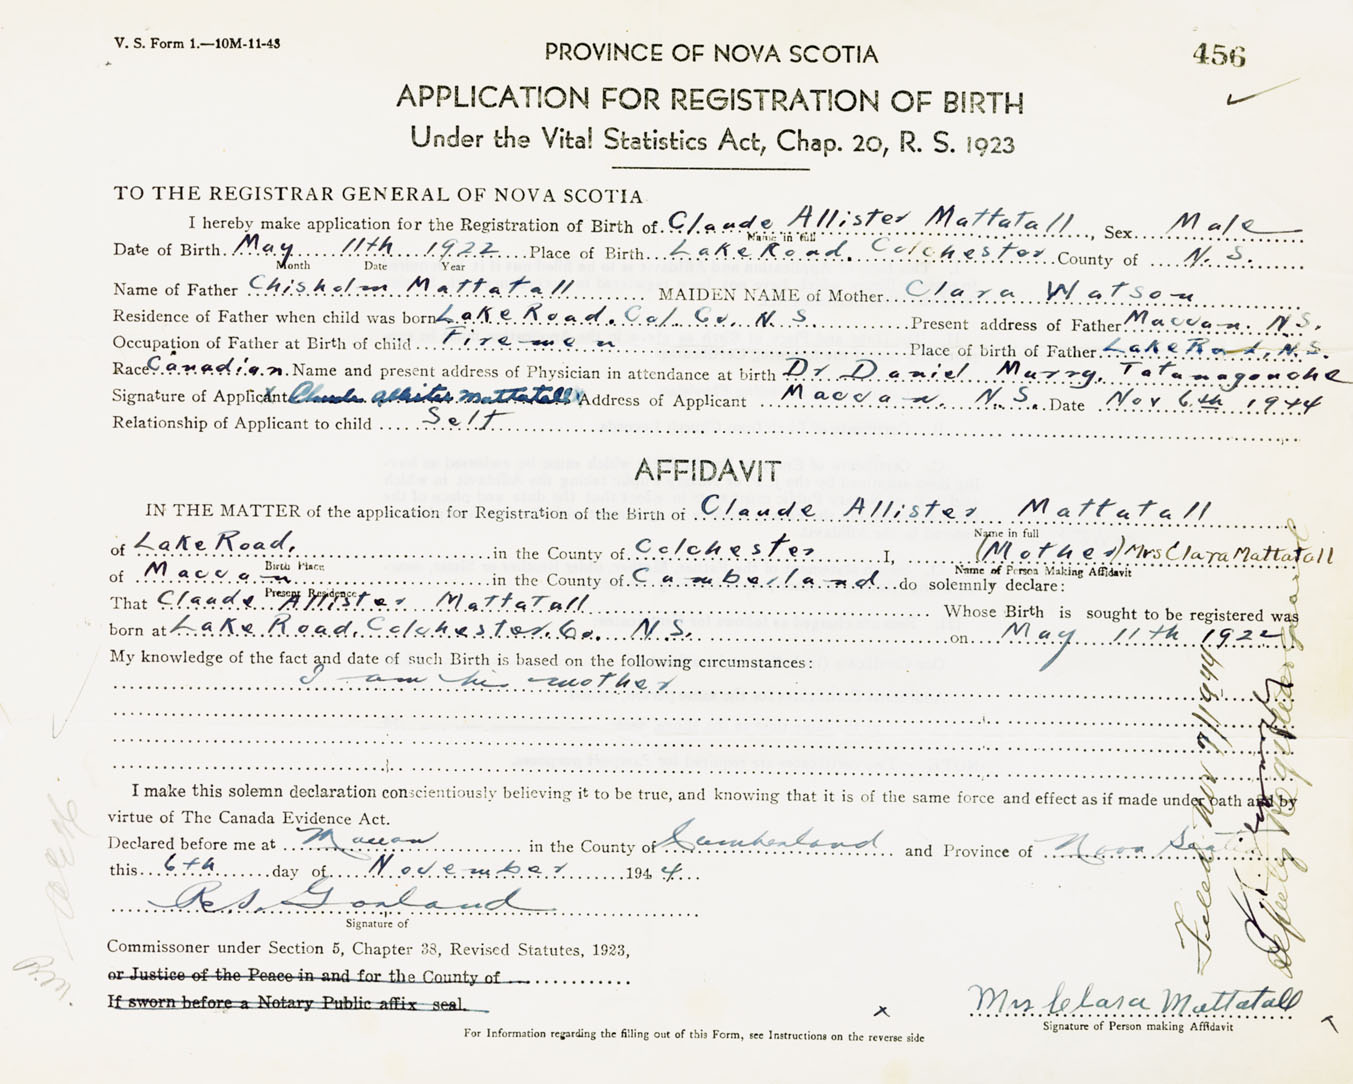 V. S. Form 1.—10M-11-43
PROVINCE OF NOVA SCOTIA
456
APPLICATION FOR REGISTRATION OF BIRTH
Under the Vital Statistics Act, Chap. 20, R. S. 1923
TO THE REGISTRAR GENERAL OF NOVA SCOTIA
I hereby make application for the Registration of Birth of Claude Allister Mattatall, Sex Male
Name in full
Date of Birth May 11th 1922 Place of Birth Lake Road, Colchester County of N. S.
Month Date Year
Name of Father Chisholm Mattatall MAIDEN NAME of Mother Clara Watson
Residence of Father when child was born Lake Road, Col. Co. N. S. Present address of Father Maccan N.S.
Occupation of Father at Birth of child Firemen Place of birth of Father Lake Road, N.S.
Race Canadian Name and present address of Physician in attendance at birth Dr Daniel Murry, Tatamagouche
Signature of Applicant Claude Allister Mattatall Address of Applicant Maccan, N.S. Date Nov 6th 1944
Relationship of Applicant to child Self
AFFIDAVIT
IN THE MATTER of the application for Registration of the Birth of Claude Allister Mattatall
Name in full
of Lake Road, in the County of Colchester I, (Mother) Mrs Clara Mattatall
Birth Place Name of Person Making Affidavit
of Maccan in the County of Cumberland do solemnly declare:
Present Residence
That Claude Allister Mattatall Whose Birth is sought to be registered was
born at Lake Road, Colchester Co. N.S. on May 11th 1922
My knowledge of the fact and date of such Birth is based on the following circumstances:
I am his mother
I make this solemn declaration conscientiously believing it to be true, and knowing that it is of the same force and effect as if made under oath and by
virtue of The Canada Evidence Act.
Declared before me at Maccan in the County of Cumberland and Province of Nova Scotia
this 6th day of November 1944
R.S. Gorland
Signature of
Commissoner under Section 5, Chapter 38, Revised Statutes, 1923,
or Justice of the Peace in and for the County of
If sworn before a Notary Public affix seal.
x
Mrs Clara Mattatall
Signature of Person making Affidavit
For Information regarding the filling out of this Form, see Instructions on the reverse side
Filed Nov 7/1944
Deputy Registrar General